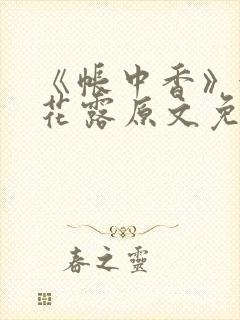 《帐中香》
花露原文免
春之靈